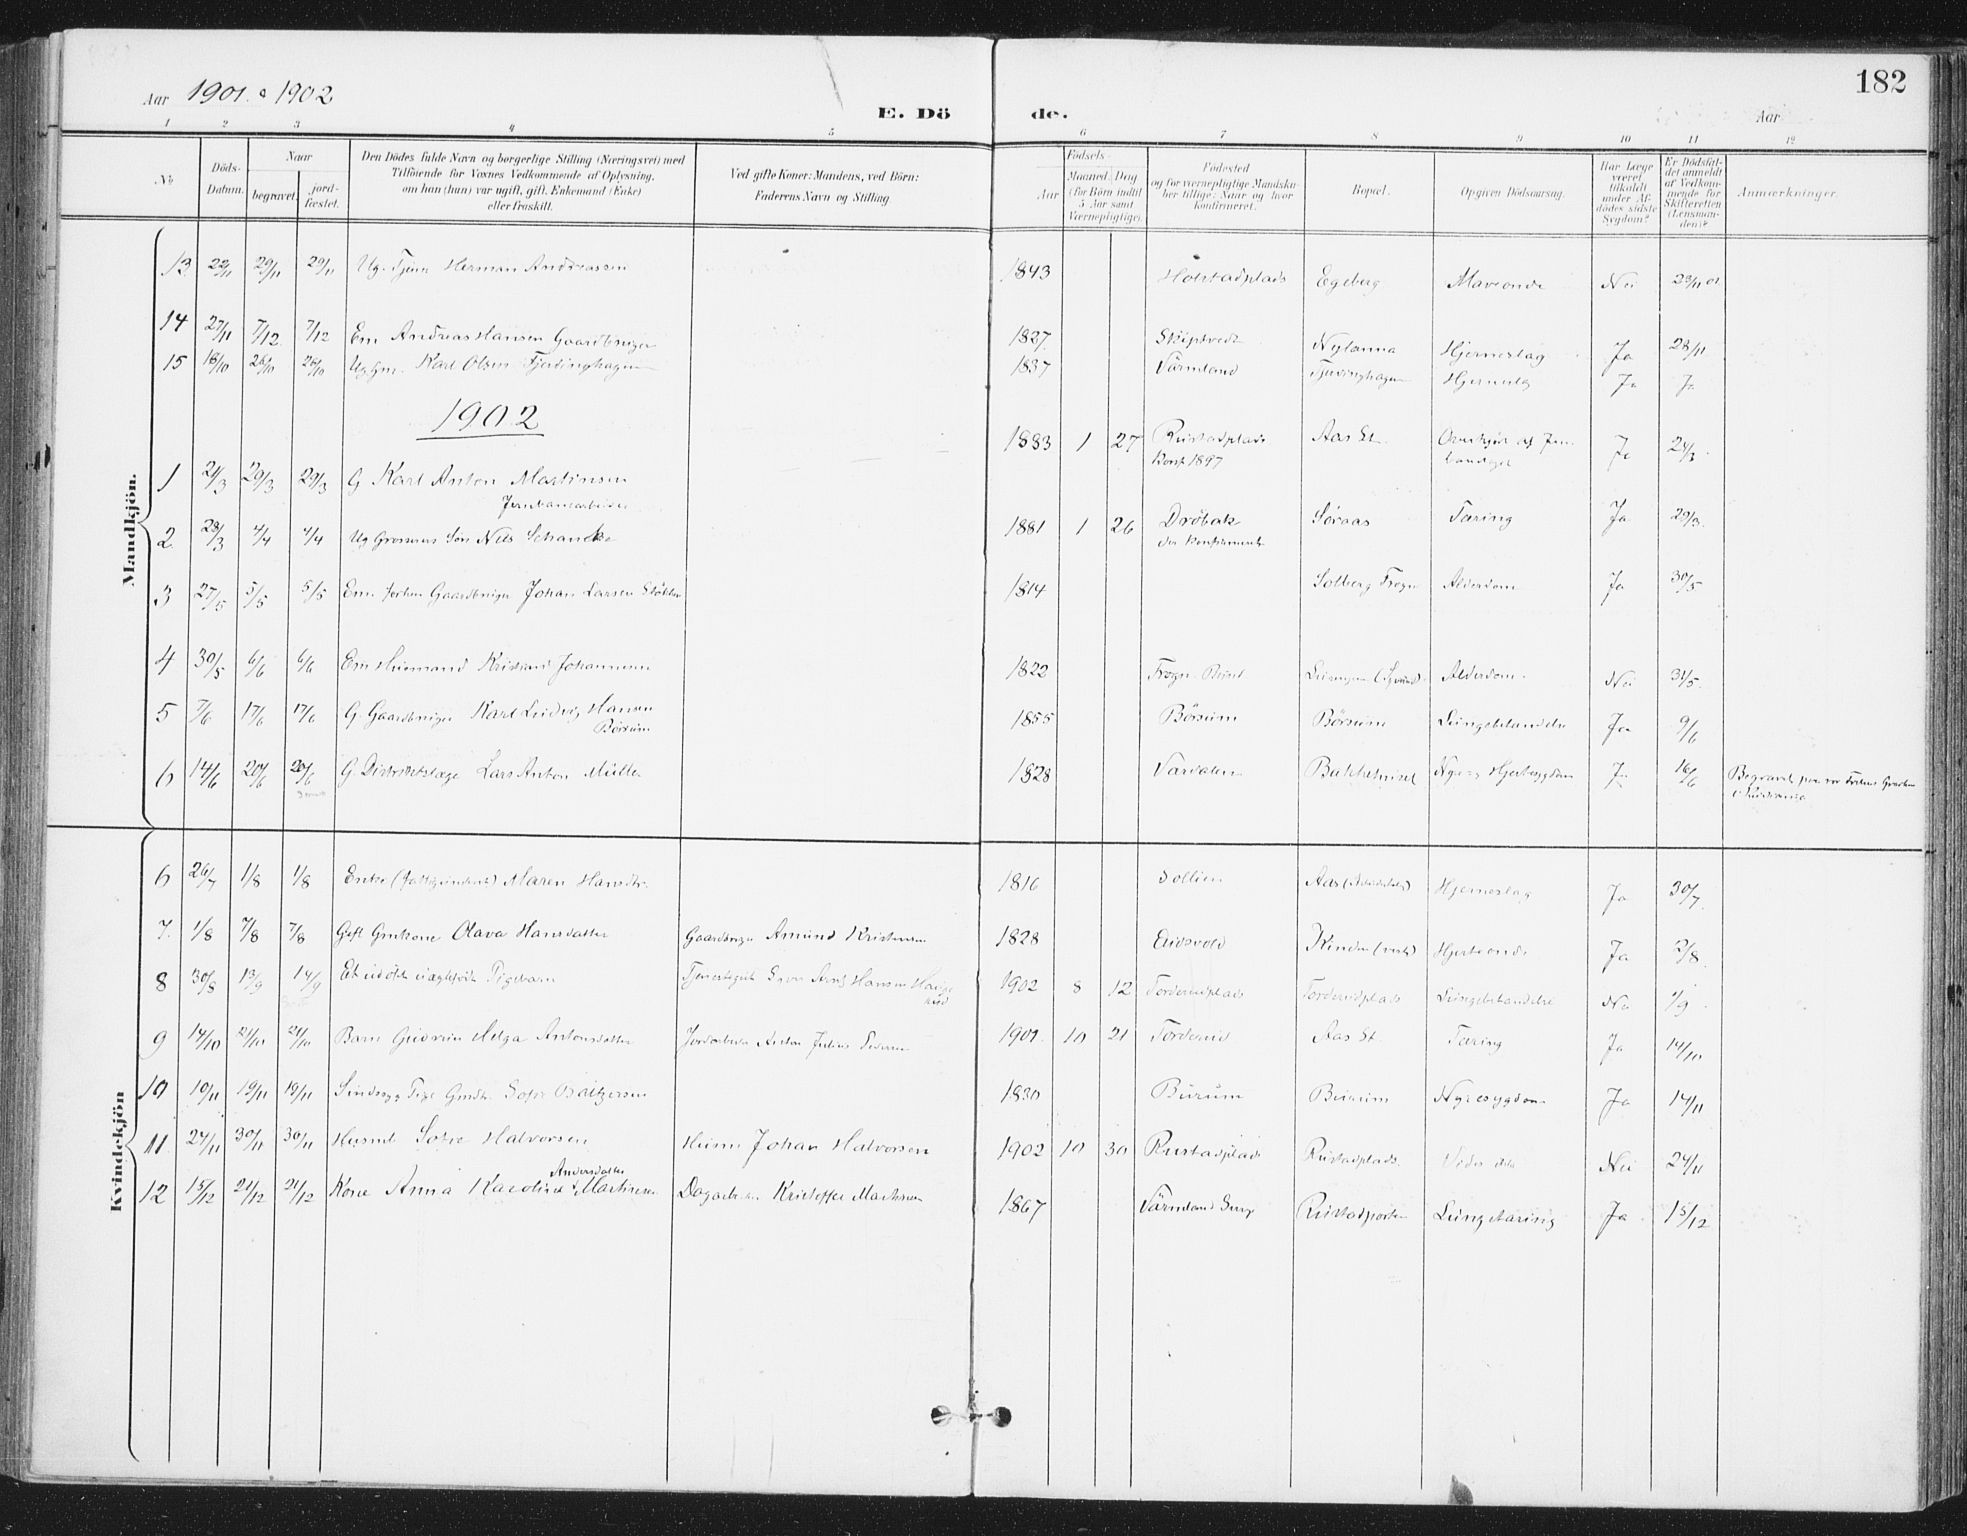 182
Aar 1901 & 1902
E. Dö de.
Aar
1 2 3 4 5 6 7 8 9 10 11 12
No
Döds-Datum.
Naar
begravet.
jord-fæstet.
Den Dödes fulde Navn og borgerlige Stilling (Næringsvei) med
Tilföiende for Voxnes Vedkommende af Oplysning,
om han (hun) var ugift, gift, Enkemand (Enke)
eller fraskilt.
Ved gifte Koner: Mandens, ved Börn:
Faderens Navn og Stilling.
Födsels-
Aar
Maaned. Dag
(for Börn indtil
5 Aar samt
Værnepligtige).
Födested
og for værnepligtige Mandska-
ber tillige: Naar og hvor
konfirmeret.
Bopæl.
Opgiven Dödsaarsag.
Har Læge
været
tilkaldt
under Af-
dödes sidste
Sygdom?
Er Dödsfal-
det anmeldt
af Vedkom-
mende for
Skifteretten
(Lensman-
den)?
Anmærkninger.
Mandkjön.
13 22/11 29/11 29/11 Ug. Tjener Herman Andreassen 1843 Holstadplads Egeberg Maveonde Nei 23/11 01
14 27/11 7/12 7/12 Em Andreas Hansen Gaardbruger 1827 Skiptvedt Nylanna Hjerneslag Ja 28/11
15 18/10 26/10 26/10 Ug Gm. Karl Olsen Fjerdinghagen 1837 Värmland Fjerdinghagen Hjerneslag Ja Ja
1902
1 21/3 29/3 29/3 G Karl Anton Martinsen 1883 1 27 Rustadplads Aas St. Overkjørt af Jern- Ja 24/3
Jernbanearbeider Konf 1897
2 28/3 4/4 4/4 Ug Grosserers Søn Nils Schancke 1881 1 26 Dröbak Söraas Tæring Ja 29/3
der konfirmeret
3 27/5 5/5 5/5 Em. forhen Gaardbruger Johan Larsen 1814 Solberg Frogn Alderdom Ja 30/5
4 30/5 6/6 6/6 Em Huusmand Kristian Johannesen 1822 Frogn Alderdom Nei 31/5
5 7/6 17/6 17/6 G. Gaardbruger Karl Ludvig Hansen 1855 Börsum Börsum Lungebetændelse Ja 9/6
Börsum
6 14/6 20/6 20/6 G. Distriktslæge Lars Anton Müller 1828 Værdalen Nyre og Hjertesygdom Ja 16/6 Begravet paa vor Frelsers Gravlund
i Kristiania
Kvindekjön
6 26/7 1/8 1/8 Enke Maren Hansdtr. 1816 Sollien Aas Hjerneslag Ja 30/7
7. 1/8 7/8 7/8 Gift Gmkone Olava Hansdatter Gaardbruger Amund Kristensen 1828 Eidsvold Kinden (vestre) Hjerteonde Ja 2/8
8 30/8 13/9 14/9 Et udöbt uægtefödt Pigebarn Hansen 1902 8 12 Torderudplads Torderudplads Lungebetændelse Nei 1/9
9 14/10 21/10 21/10 Barn Gudrun Helga Antonsdatter Jordarbeider Anton Julius 1901 10 21 Torderud Aas St. Tæring Ja 14/10
10 10/11 19/11 19/11 Sindssyg Pige Sofie Baltzersen 1830 Burum Burum Nyresygdom Ja 14/11
11. 24/11 30/11 30/11 Husmb Sofie Halvorsen Husm Johan Halvorsen 1902 10 30 Rustadplads Rustadplads Nei 24/11
12 15/12 21/12 21/12 Kone Anna Karoline Andersdatter Martinsen Dagarb. Kristoffer Martinsen 1867 Värmland Rustadporten Lungetæring Ja 15/12